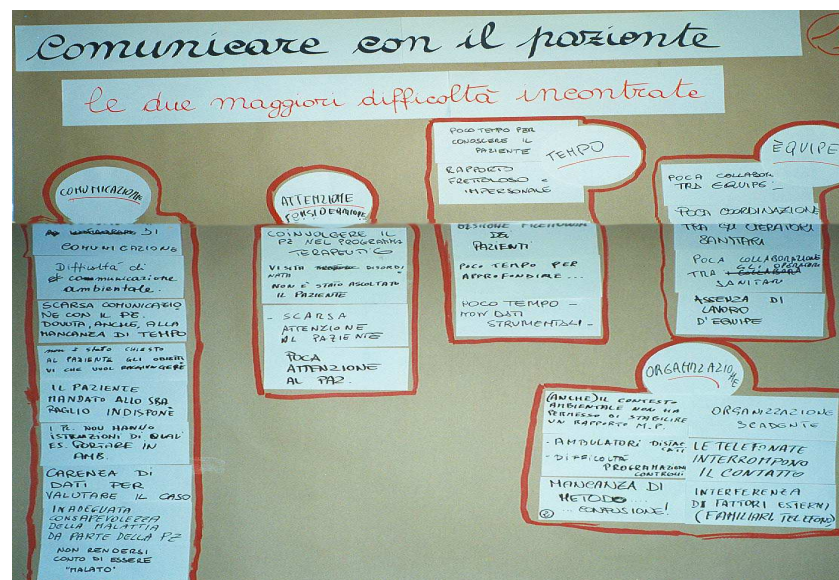 Comunicare con il paziente
le due maggiori difficoltà incontrate
COMUNICAZIONE
DI
COMUNICAZIONE
Difficoltà di
comunicazione
ambientale.
SCARSA COMUNICAZIO
NE CON IL PZ.
DOVUTA, ANCHE, ALLA
MANCANZA DI TEMPO
NON È STATO CHIESTO
AL PAZIENTE GLI OBIETTI
VI CHE VUOL RAGGIUNGERE
IL PAZIENTE
MANDATO ALLO SBA
RAGLIO INDISPONE
I PZ. NON HANNO
ISTRUZIONI DI QUALI
ES. PORTARE IN
AMB.
CARENZA DI
DATI PER
VALUTARE IL CASO
INADEGUATA
CONSAPEVOLEZZA
DELLA MALATTIA
DA PARTE DELLA PZ
NON RENDERSI
CONTO DI ESSERE
"MALATO"
ATTENZIONE
CONSIDERAZIONE
COINVOLGERE IL
PZ NEL PROGRAMMA
TERAPEUTICO
VISITA DISORDI
NATA
NON È STATO ASCOLTATO
IL PAZIENTE
- SCARSA
ATTENZIONE
AL PAZIENTE
POCA
ATTENZIONE
AL PAZ.
TEMPO
POCO TEMPO PER
CONOSCERE IL
PAZIENTE
RAPPORTO
FRETTOLOSO e
IMPERSONALE
DEI
PAZIENTI
POCO TEMPO PER
APPROFONDIRE...
POCO TEMPO -
NON DATI
STRUMENTALI -
ÈQUIPE
POCA COLLABOR.
TRA EQUIPE -
POCA COORDINAZIONE
TRA GLI OPERATORI
SANITARI
POCA COLLABORAZIONE
TRA GLI OPERATORI
SANITARI
ASSENZA DI
LAVORO
D'EQUIPE
ORGANIZZAZIONE
(ANCHE) IL CONTESTO
AMBIENTALE NON HA
PERMESSO DI STABILIRE
UN RAPPORTO M.P.
- AMBULATORI DISTAC
CATI
- DIFFICOLTÀ
PROGRAMMAZIONE
CONTROLLI
MANCANZA DI
METODO ....
... CONFUSIONE!
ORGANIZZAZIONE
SCADENTE
LE TELEFONATE
INTERROMPONO
IL CONTATTO
INTERFERENZA
DI FATTORI ESTERNI
(FAMILIARI, TELEFONO)